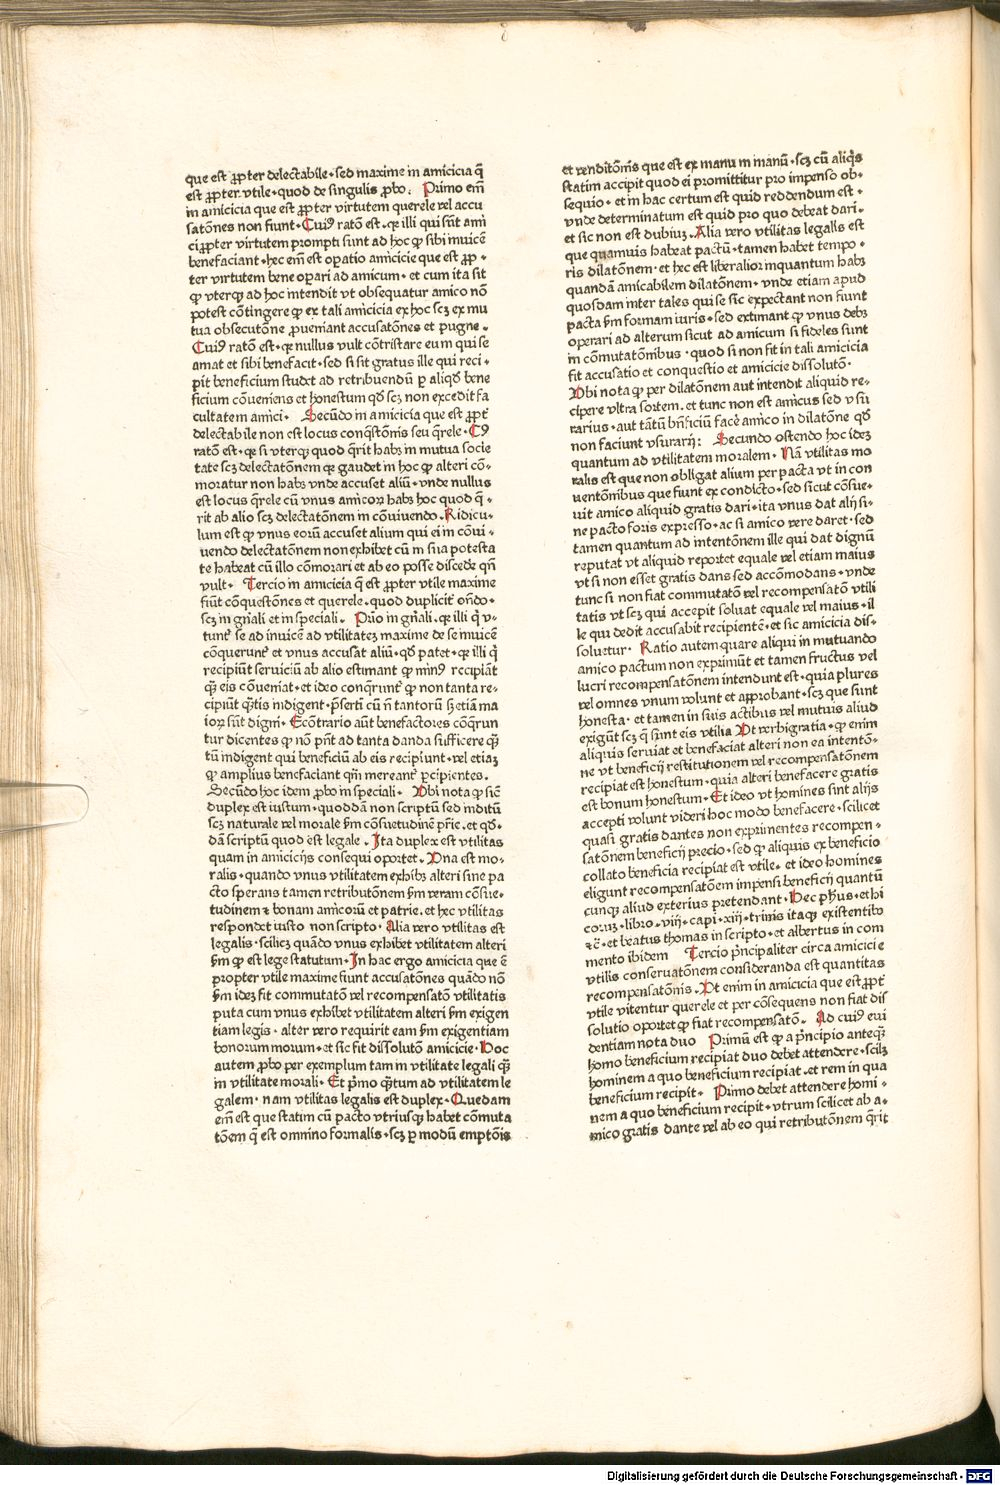 que est ꝓpter delectabile · sed maxime in amicicia q̄
est ꝓpter vtile · quod de singulis ꝓbo . Primo em̄
in amicicia que est ꝓpter virtutem querele vel accu
satōnes non fiunt · Cuiꝰ ratō est · qꝛ illi qui sūt ami
ci ꝓpter virtutem prompti sunt ad hoc ꝙ sibi inuicē
benefaciant · hec em̄ est oꝑatio amicicie que est ꝓp ·
ter virtutem bene oꝑari ad amicum · et cum ita sit
ꝙ vterqꝫ ad hoc intendit vt obsequatur amico nō
potest cōtingere ꝙ ex tali amicicia ex hoc scꝫ ex mu
tua obsecutōne ꝓueniant accusatōnes et pugne .
Cuiꝰ ratō est · qꝛ nullus vult cōtristare eum qui se
amat et sibi benefacit · sed si sit gratus ille qui reci ·
pit beneficium studet ad retribuendū ꝑ aliqđ bene
ficium cōueniens et honestum qđ scꝫ non excedit fa
cultatem amici · Secūdo in amicicia que est ꝓpt̄
delectabile non est locus conq̄stōnis seu q̄rele · Cꝰ
ratō est · qꝛ si vterqꝫ quod q̄rit habꝫ in mutua socie
tate scꝫ delectatōnem qꝛ gaudet in hoc ꝙ alteri cō-
moratur non habꝫ vnde accuset aliū · vnde nullus
est locus q̄rele cū vnus amicoꝝ habꝫ hoc quod q̄ -
rit ab alio scꝫ delectatōnem in cōuiuendo . Ridicu-
lum est ꝙ vnus eorū accuset alium qui ei in cōui ·
uendo delectatōnem non exhibet cū in sua potesta
te habeat cū illo cōmorari et ab eo posse discede qn̄
vult · Tercio in amicicia q̄ est ꝓpter vtile maxime
fiūt cōquestōnes et querele . quod duplicit̄ on̄do ·
scꝫ in gn̄ali et in speciali . Prio in gn̄ali . qꝛ illi q̄ v-
tunt̄ se ad inuicē ad vtilitateꝫ maxime de se inuicē
cōquerunt̄ et vnus accusat aliū · qđ patet · qꝛ illi q̄
recipiūt seruiciū ab alio estimant ꝙ minꝰ recipiāt
qꝫ̄ eis cōueniat · et ideo conq̄runt̄ ꝙ non tanta re-
cipiūt q̄tis indigent · p̄serti cū n̄ tantorū sꝫ etiā ma
ioꝝ sūt digni · Econtrario aūt benefactores cōq̄run
tur dicentes ꝙ nō pn̄t ad tanta danda sufficere qꝫ̄
tū indigent qui beneficiū ab eis recipiunt · vel etiaꝫ
ꝙ amplius benefaciant qm̄ mereant̄ ꝑcipientes .
Secūdo hoc idem ꝓbo in speciali · Vbi nota ꝙ sic̄
duplex est iustum · quoddā non scriptū sed inditū
scꝫ naturale vel morale ẜm cōsuetudinē pr̄ie . et qđ-
dā scriptū quod est legale . Ita duplex est vtilitas
quam in amicicijs consequi oportet . Vna est mo-
ralis · quando vnus vtilitatem exhibꝫ alteri sine pa
cto sperans tamen retributōnem ẜm veram cōsue-
tudinem ⁊ bonam amicorū et patrie . et hec vtilitas
respondet iusto non scripto · Alia vero vtilitas est
legalis · scilicꝫ quādo vnus exhibet vtilitatem alteri
ẜm ꝙ est lege statutum · In hac ergo amicicia que ē
propter vtile maxime fiunt accusatōnes quādo nō
ẜm ideꝫ fit commutatō vel recompensatō vtilitatis
puta cum vnus exhibet vtilitatem alteri ẜm exigen
tiam legis · alter vero requirit eam ẜm exigentiam
bonorum morum · et sic fit dissolutō amicicie · Hoc
autem ꝓbo per exemplum tam in vtilitate legali qꝫ̄
in vtilitate morali · Et p̄mo q̄tum ad vtilitatem le
galem · nam vtilitas legalis est duplex · Quedam
em̄ est que statim cū pacto vtriusqꝫ habet cōmuta
tōem q̄ est omnino formalis · scꝫ ꝑ modū emptōis
et venditōnis que est ex manu in manū · scꝫ cū aliq̄s
statim accipit quod ei promittitur pro impenso ob·
sequio · et in hac certum est quid reddendum est ·
vnde determinatum est quid pro quo debeat dari ·
et sic non est dubiuꝫ . Alia vero vtilitas legalis est
que quamuis habeat pactū · tamen habet tempo ·
ris dilatōnem · et hec est liberalior inquantum habꝫ
quandā amicabilem dilatōnem · vnde etiam apud
quosdam inter tales qui se sic expectant non fiunt
pacta ẜm formam iuris · sed extimant ꝙ vnus debꝫ
operari ad alterum sicut ad amicum si fideles sunt
in cōmutatōnibus · quod si non fit in tali amicicia
fit accusatio et conquestio et amicicie dissolutō ·
Vbi nota ꝙ per dilatōnem aut intendit aliquid re-
cipere vltra sortem . et tunc non est amicus sed vsu
rarius · aut tātū bn̄ficiū face amico in dilatōne qđ
non faciunt vsurarij : Secundo ostendo hoc ideꝫ
quantum ad vtilitatem moralem · Nā vtilitas mo
ralis est que non obligat alium per pacta vt in con
uentōnibus que fiunt ex condicto · sed sicut cōsue-
uit amico aliquid gratis dari · ita vnus dat alij si-
ne pacto foris expresso · ac si amico vere daret · sed
tamen quantum ad intentōnem ille qui dat dignū
reputat vt aliquid reportet equale vel etiam maius
vt si non esset gratis dans sed accōmodans · vnde
tunc si non fiat commutatō vel recompensatō vtili
tatis vt scꝫ qui accepit soluat equale vel maius · il
le qui dedit accusabit recipientē · et sic amicicia dis-
soluetur · Ratio autem quare aliqui in mutuando
amico pactum non exprimūt et tamen fructus vel
lucri recompensatōnem intendunt est · quia plures
vel omnes vnum volunt et approbant · scꝫ que sunt
honesta · et tamen in suis actibus vel mutuis aliud
exigūt scꝫ q̄ sunt eis vtilia Vt verbigratia · ꝙ enim
aliquis seruiat et benefaciat alteri non ea intentō-
ne vt beneficij restitutionem vel recompensatōnem
recipiat est honestum · quia alteri benefacere gratis
est bonum honestum · Et ideo vt homines sint alijs
accepti volunt videri hoc modo benefacere · scilicet
quasi gratis dantes non exprimentes recompen-
satōnem beneficij precio · sed ꝙ aliquis ex beneficio
collato beneficia recipiat est vtile · et ideo homines
eligunt recompensatōem impensi beneficij quantū
cunqꝫ aliud exterius pretendant · Hec ph̄us · ethi
coruꝫ · libro · viij · capi · xiij · trinis itaqꝫ existentibꝰ
⁊ c̄ · et beatus thomas in scripto · et albertus in com
mento ibidem Tercio pn̄cipaliter circa amicicie
vtilis conseruatōnem consideranda est quantitas
recompensatōnis . Vt enim in amicicia que est ꝓpt̄
vtile vitentur querele et per cōsequens non fiat dis
solutio oportet ꝙ fiat recompensatō . Ad cuiꝰ eui
dentiam nota duo Primū est ꝙ a pn̄cipio anteqꝫ̄
homo beneficium recipiat duo debet attendere · scilꝫ
hominem a quo beneficium recipiat · et rem in qua
beneficium recipit · Primo debet attendere homi ·
nem a quo beneficium recipit · vtrum scilicet ab a-
mico gratis dante vel ab eo qui retributōnem q̄rit
Digitalisierung gefördert durch die Deutsche Forschungsgemeinschaft - DFG